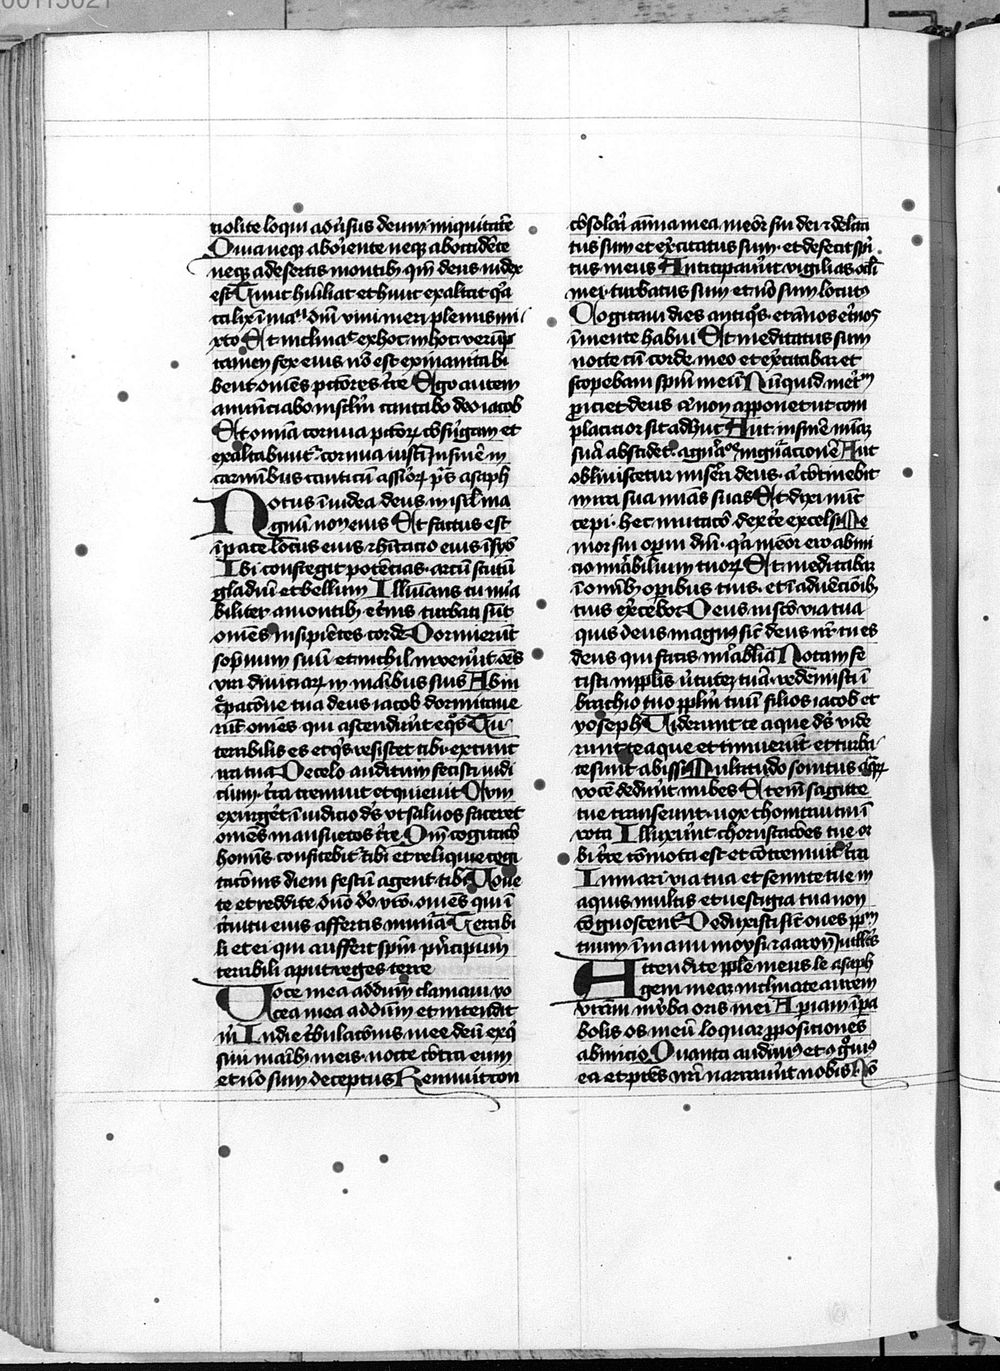 nolite loqui adũsus deum iniquitatē
Quia neqꝫ aboriente neqꝫ aboccidēte
neqꝫ adesertis montibꝫ qm̄ deus iudex
est Hunc humiliat et hunc exaltat qꝛ
calix ī manu dn̄i vini meri plenus mi
xto Et inclinauᵗ ex hoc in hoc verūp
tamen fex eius nō est exinanita bi
bent omēs pctores tr̄e Ego autem
annūciabo inseculm̄ cantabo deo iacob
Et omīa cornua pctoꝝ cōfrīgam et
exaltabuntᵘ cornua iusti In finē in
carmībus canticū assiroꝝ ps̄ asaph
Notus ī iudea deus in isrl̄ ma
gnū nomen eius Et factus est
ī pace locus eius et hītacio eius ī syō
Ibi confregit potēcias arcū scutū
gladiū et bellum Illuīans tu mīa
biliter amontibꝫ et̄nis turbati sūt
omēs insipiētes corde Dormierūt
sopnum suū et nichil inuenerūt oēs
viri diuiciaꝝ in maībus suis Ab in
crepacōne tua deus iacob dormitaue
rūt omēs qui ascenderūt eqͦs Tu
terribilis es et qͥs resistet tibi ex tunc
ira tua De celo auditum fecisti iudi
cium tr̄a tremuit et quieuit Cum
exurgeret ī iudicio ds̄ vt saluos faceret
omēs mansuetos tr̄e Qm̄ cogitacō
homīs confitebitᵘ tibi et reliquie cogi
tacōnis diem festū agent tibi Uoue
te et reddite dn̄o deo vr̄o omēs qui ī
circuitu eius affertis munera Terribi
li et ei qui auffert spm̄ pncipum
terribili aput reges terre
Uoce mea ad dnm̄ clamaui vo
ce mea ad deum et intendit
m̄ In die tribulacōnis mee deū exqͥ
siui maībꝫ meis nocte cōtra eum
et nō sum deceptus Renuit con
cōsolari anima mea meōr fui dei et delcta
tus sum et exercitatus sum et defecit spi
tus meus Anticipauerūt vigilias ocli
mei turbatus sum et nō sum locutꝰ
Cogitaui dies antiqͦs et annos et̄nos
ī mente habui Et meditatus sum
nocte cū corde meo et exercitabar et
scopebam spm̄ meū Nūquid ī et̄nū
proiciet deus aut non apponet ut com
placitior sit adhuc Aut in finē miaꝫ
suā abscidet a gnāōe in gnāacionē Aut
obliuiscetur misereri deus aut cōtinebit
in ira sua mias suas Et dixi nunc
cepi hec mutacō dexte excelsi Me
mor fui operū dn̄i qꝛ meōr ero ab ini
cio mīabilium tuoꝝ Et meditabar
ī omībꝫ opibus tuis et ī adinuēcionibꝫ
tuis exercebor Deus in scō via tua
quis deus magnus sic̄ deus nr̄ tu es
deus qui facis mīabilia Notam fe
cisti in pplis uirtutem tuā redemisti ī
brachio tuo pplm̄ tuū filios iacob et
yoseph Uiderunt te aque ds̄ vide
runt te aque et timuerūt et turba
te sunt abissi Multitudo sonitus aqͣꝝ
vocē dederūt nubes Etenī sagitte
tue transeunt vox thonitrui tui ī
rota Illuxerūt choruscacōes tue or
bi tr̄e cōmota est et cōtremuit tr̄a
In mari via tua et semite tue in
aquis multis et vestigia tua non
cōgnoscentᵘ Deduxisti sic̄ oues ppm̄
tuum ī manu moysi et aaron Intellcūs
Attendite pple meus le asaph
gem meaꝫ inclinate aurem
vrām in verba oris mei Aperiam ī pa
bolis os meū loquar ppositiones
ab inicio Quanta audiuimꝰ et cognouimꝰ
ea et patres nr̄i narrauerūt nobis Nō